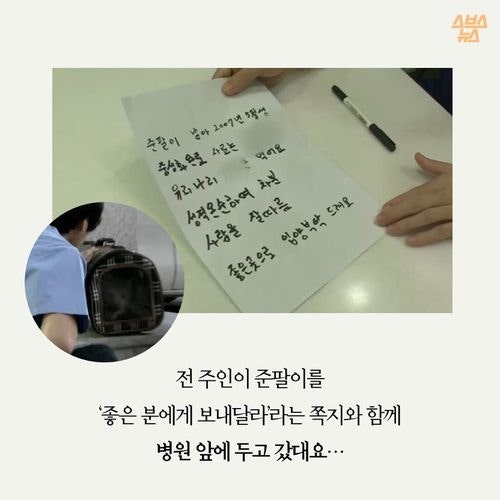 스브스
뉴스
준팔이 남아 2007년 5월생
중성화 완료 사료는
유리나리 먹어요
성격온순하며 차분
사람을 잘따름
좋은곳으로 입양부탁 드려요
전 주인이 준팔이를
‘좋은 분에게 보내달라’라는 쪽지와 함께
병원 앞에 두고 갔대요…